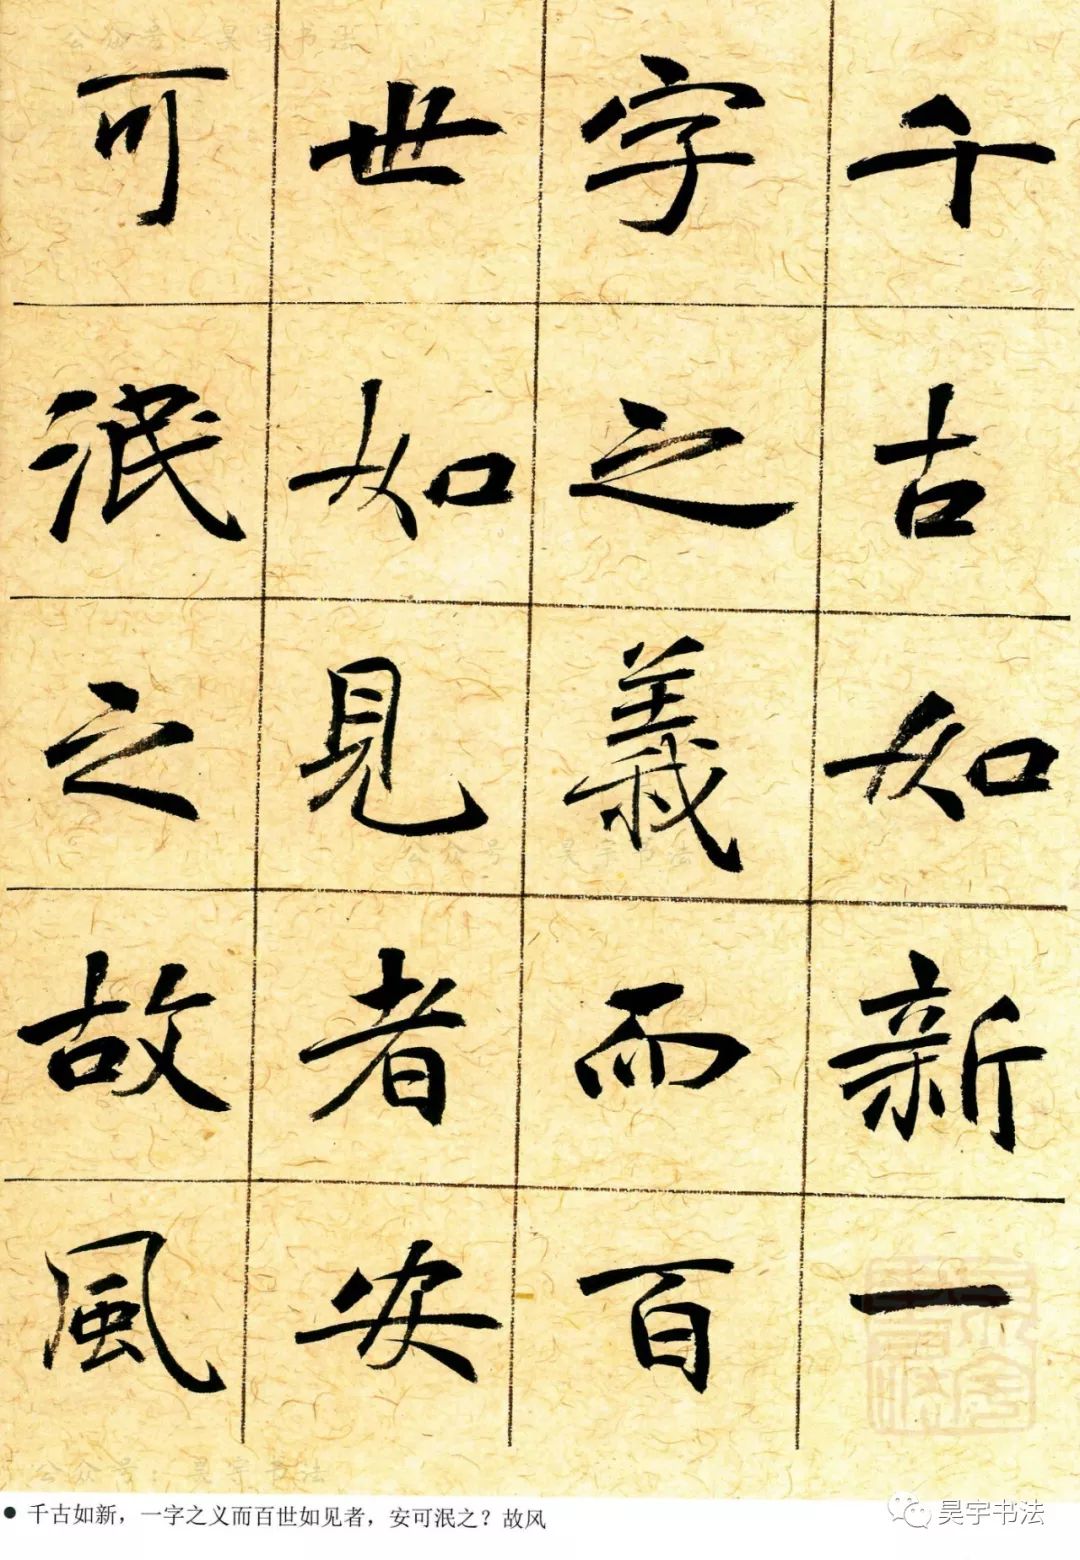 千古如新一
字之義而百
世如見者安
可泯之故風
公众号：昊宇书法
公众号 昊宇书法
公众号：昊宇书法
千古如新，一字之义而百世如见者，安可泯之？故风
昊宇书法